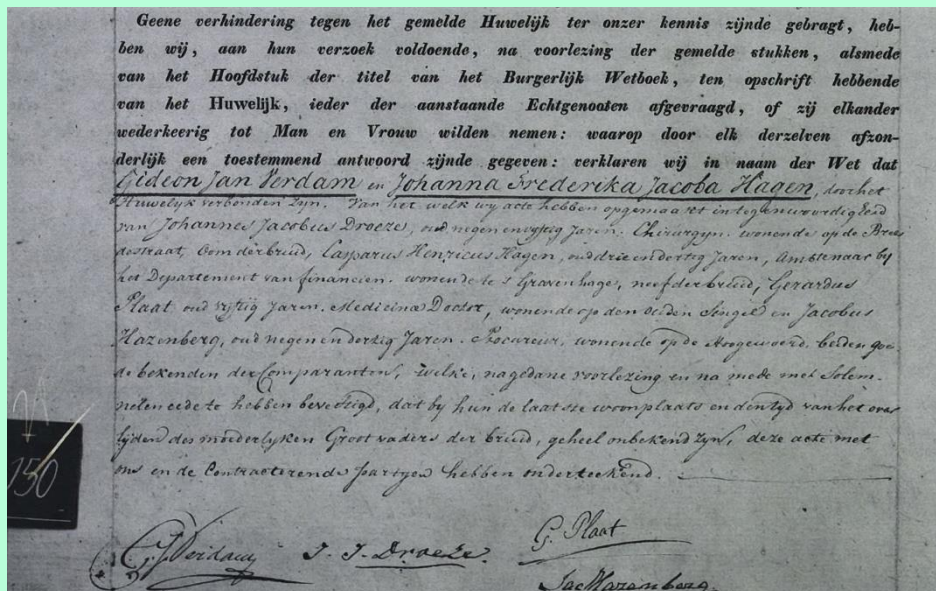 Geene verhindering tegen het gemelde Huwelijk ter onzer kennis zijnde gebragt, heb-
ben wij, aan hun verzoek voldoende, na voorlezing der gemelde stukken, alsmede
van het Hoofdstuk der titel van het Burgerlijk Wetboek, ten opschrift hebbende
van het Huwelijk, ieder der aanstaande Echtgenooten afgevraagd, of zij elkander
wederkeerig tot Man en Vrouw wilden nemen: waarop door elk derzelven afzon-
derlijk een toestemmend antwoord zijnde gegeven: verklaren wij in naam der Wet dat
Gideon Jan Verdam en Johanna Frederika Jacoba Hagen, door het
Huwelyk verbonden zyn. Van het welk wy acte hebben opgemaakt in tegenwoordigheid
van Johannes Jacobus Droeze, oud negen en vyftig Jaren. Chirurgyn. wonende op de Bree
destraat, Oom der bruid, Casparus Henricus Hagen, oud drie en dertig Jaren, Ambtenaar by
het Departement van financien. wonende te s'Gravenhage, neef der bruid, Gerardus
Plaat oud vyftig Jaren. Medicinae Doctor, wonende op den Ouden Singel en Jacobus
Hazenberg, oud negen en dertig Jaren. Procureur. wonende op de Hoogewoerd. beiden goe-
de bekenden der Comparanten, welke, na gedane voorlezing en na mede met Solem-
nelen eede te hebben bevestigd, dat by hun de laatste woonplaats en den tyd van het over
lyden des moederlyken Grootvaders der bruid, geheel onbekend zyn, deze acte met
ons en de Contracterende partyen hebben onderteekend.
150
G. J. Verdam J. J. Droeze. G. Plaat
Jac Hazenberg.